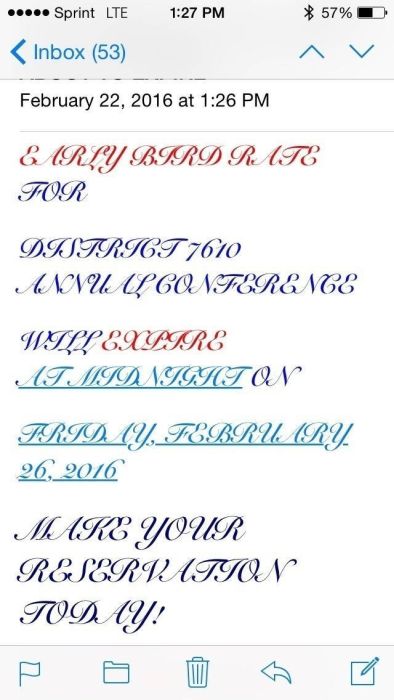 Sprint LTE 1:27 PM 57%
Inbox (53)
February 22, 2016 at 1:26 PM
EARLY BIRD RATE
FOR
DISTRICT 7610
ANNUAL CONFERENCE
WILL EXPIRE
AT MIDNIGHT ON
FRIDAY, FEBRUARY
26, 2016
MAKE YOUR
RESERVATION
TODAY!